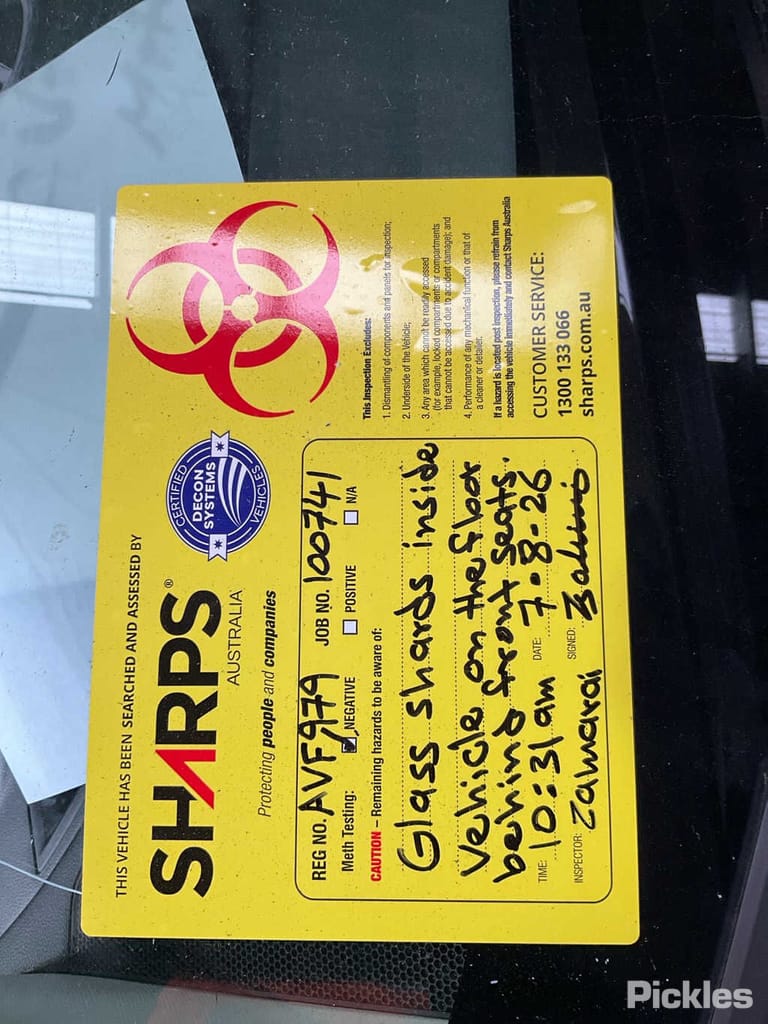 THIS VEHICLE HAS BEEN SEARCHED AND ASSESSED BY
SHARPS®
AUSTRALIA
CERTIFIED
DECON
SYSTEMS
VEHICLES
Protecting people and companies
REG NO. AVF979 JOB NO. 100741
Meth Testing: NEGATIVE POSITIVE N/A
CAUTION – Remaining hazards to be aware of:
Glass shards inside
vehicle on the floor
behind front seats.
TIME: 10:31am DATE: 7-8-26
INSPECTOR: Zamarai SIGNED:
This Inspection Excludes:
1. Dismantling of components and panels for inspection;
2. Underside of the Vehicle;
3. Any area which cannot be readily accessed
(for example, locked compartments or compartments
that cannot be accessed due to accident damage); and
4. Performance of any mechanical function or that of
a cleaner or detailer.
If a hazard is located post inspection, please refrain from
accessing the vehicle immediately and contact Sharps Australia
CUSTOMER SERVICE:
1300 133 066
sharps.com.au
Pickles